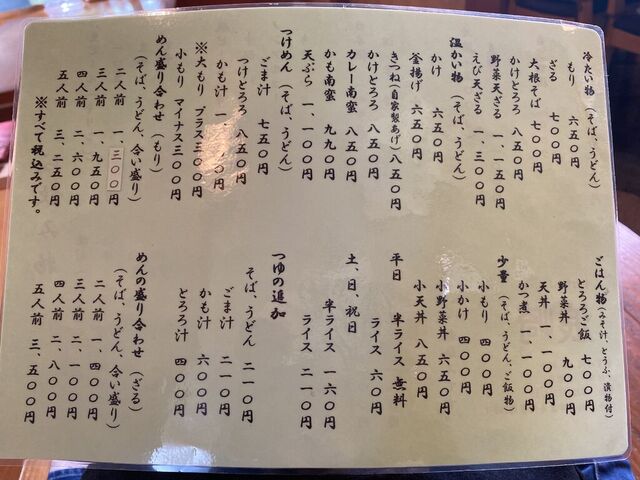 冷たい物（そば、うどん）
もり　六五〇円
ざる　七〇〇円
大根そば　七〇〇円
かけとろろ　八五〇円
野菜天ざる　一、一五〇円
えび天ざる　一、三〇〇円
温かい物（そば、うどん）
かけ　六五〇円
釜揚げ　六五〇円
かけとろろ　八五〇円
きつね（自家製あげ）八五〇円
カレー南蛮　八五〇円
かも南蛮　九九〇円
天ぷら　一、一〇〇円
つけめん（そば、うどん）
ごま汁　七五〇円
つけとろろ　八五〇円
かも汁　一、〇〇円
※大もり　プラス三〇〇円
小もり　マイナス三〇〇円
めん盛り合わせ（もり）
（そば、うどん、合い盛り）
二人前　一、三〇〇円
三人前　一、九五〇円
四人前　二、六〇〇円
五人前　三、二五〇円
※すべて税込みです。
ごはん物（みそ汁、とうふ、漬物付）
とろろご飯　七〇〇円
野菜丼　九〇〇円
天丼　一、一〇〇円
かつ煮　一、一〇〇円
少量（そば、うどん、ご飯物）
小もり　四〇〇円
小かけ　四〇〇円
小野菜丼　六五〇円
小天丼　八五〇円
平日　半ライス　無料
ライス　六〇円
土、日、祝日
半ライス　一六〇円
ライス　二一〇円
つゆの追加
そば、うどん　二一〇円
ごま汁　二一〇円
かも汁　六〇〇円
とろろ汁　四〇〇円
めんの盛り合わせ（ざる）
（そば、うどん、合い盛り）
二人前　一、四〇〇円
三人前　二、一〇〇円
四人前　二、八〇〇円
五人前　三、五〇〇円